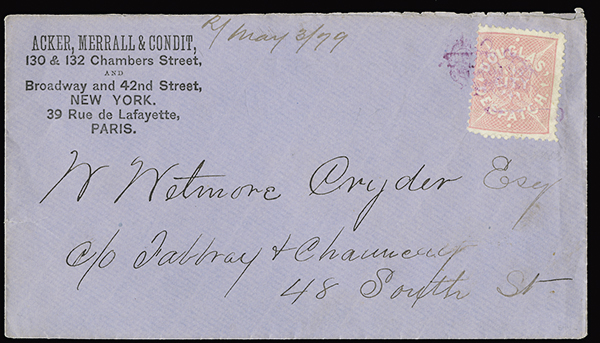 ACKER, MERRALL & CONDIT,
130 & 132 Chambers Street,
AND
Broadway and 42nd Street,
NEW YORK.
39 Rue de Lafayette,
PARIS.
R/ May 3/79
DOUGLAS
DESPATCH
W Wetmore Cryder Esq
c/o Fabbray & Chauncey
48 South St.